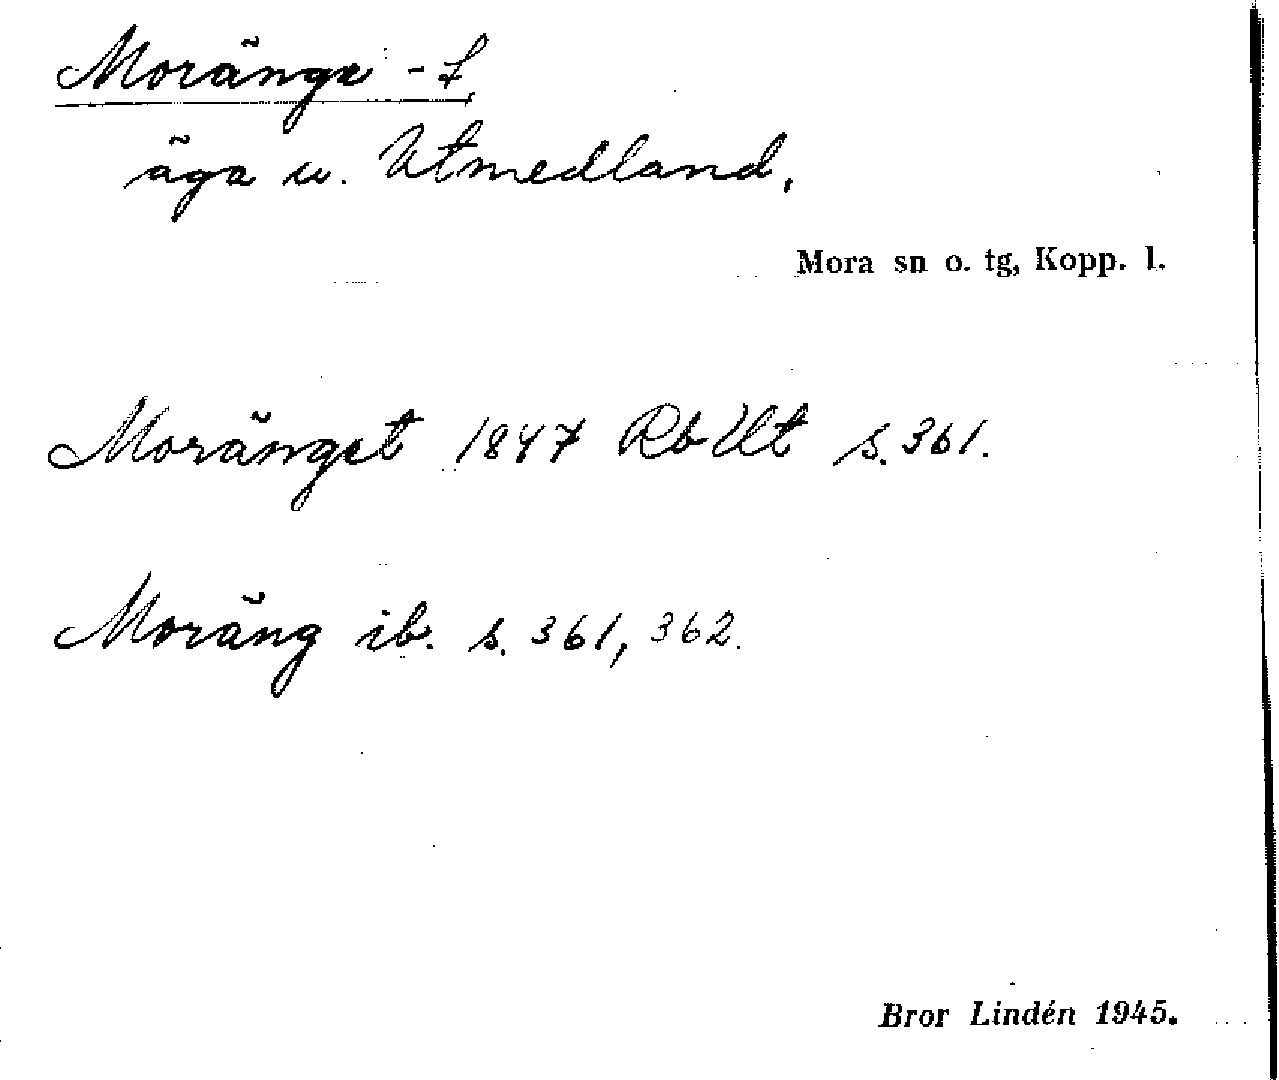 Moränge -t,
äga u. Utmedland.
Mora sn o. tg, Kopp. l.
Moränget 1847 RbUt s. 361.
Moräng ib. s. 361, 362.
Bror Lindén 1945.